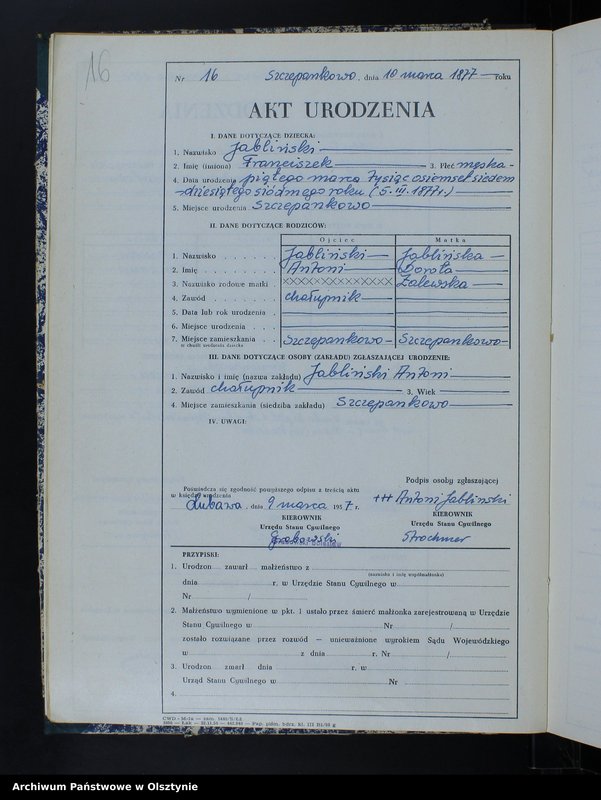 16
Nr 16 Szczepankowo, dnia 10 marca 1877 roku
AKT URODZENIA
I. DANE DOTYCZĄCE DZIECKA:
1. Nazwisko Jabliński
2. Imię (imiona) Franciszek 3. Płeć męska
4. Data urodzenia piątego marca tysiąc osiemset siedem
dziesiątego siódmego roku (5.III.1877r.)
5. Miejsce urodzenia Szczepankowo
II. DANE DOTYCZĄCE RODZICÓW:
Ojciec Matka
1. Nazwisko Jabliński Jablińska
2. Imię Antoni Dorota
3. Nazwisko rodowe matki XXXXXXXXXXXX Zalewska
4. Zawód chałupnik
5. Data lub rok urodzenia
6. Miejsce urodzenia
7. Miejsce zamieszkania Szczepankowo Szczepankowo
w chwili urodzenia dziecka
III. DANE DOTYCZĄCE OSOBY (ZAKŁADU) ZGŁASZAJĄCEJ URODZENIE:
1. Nazwisko i imię (nazwa zakładu) Jabliński Antoni
2. Zawód chałupnik 3. Wiek
4. Miejsce zamieszkania (siedziba zakładu) Szczepankowo
IV. UWAGI:
Poświadcza się zgodność powyższego odpisu z treścią aktu
w księdze urodzenia
Lubawa, dnia 9 marca 1957 r.
KIEROWNIK
Urzędu Stanu Cywilnego
Grabowski
Podpis osoby zgłaszającej
+++ Antoni Jabliński
KIEROWNIK
Urzędu Stanu Cywilnego
Strochmer
PRZYPISKI:
1. Urodzon zawarł małżeństwo z
(nazwisko i imię współmałżonka)
dnia r. w Urzędzie Stanu Cywilnego w
Nr /
2. Małżeństwo wymienione w pkt. 1 ustało przez śmierć małżonka zarejestrowaną w Urzędzie
Stanu Cywilnego w Nr /
zostało rozwiązane przez rozwód – unieważnione wyrokiem Sądu Wojewódzkiego
w z dnia r. Nr /
3. Urodzon zmarł dnia r. w
Urząd Stanu Cywilnego w Nr
4.
Archiwum Państwowe w Olsztynie